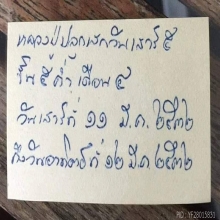 หลวงปู่ปลุกเสกวันเสาร์ ๕
ขึ้น ๕ ค่ำ เดือน ๕
วันเสาร์ที่ ๑๑ มี.ค. ๒๕๓๒
ถึงวันอาทิตย์ที่ ๑๒ มี.ค. ๒๕๓๒
MO: YF28015830